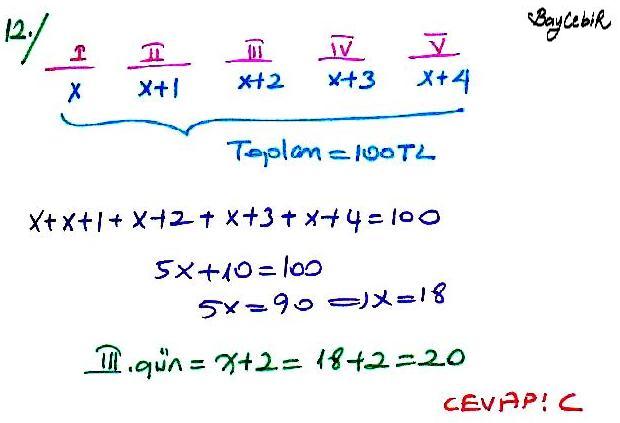 12./ BayCebiR
I II III IV V
x x+1 x+2 x+3 x+4
Toplam = 100TL
x+x+1+x+2+x+3+x+4=100
5x+10=100
5x=90 ⇒ x=18
III.gün = x+2 = 18+2 = 20
CEVAP: C